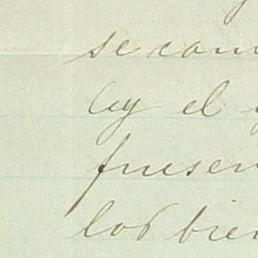 se com
ley el
fuesen
los bien